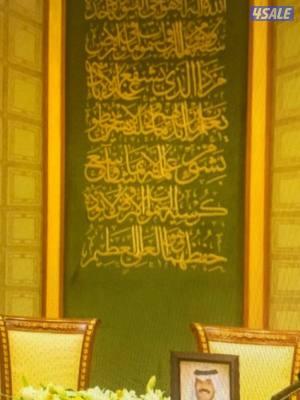 4SALE
الله لا إله إلا هو الحي القيوم لا تأخذه
سنة ولا نوم له ما في السموات وما في الأرض
من ذا الذي يشفع عنده إلا بإذنه
يعلم ما بين أيديهم وما خلفهم ولا يحيطون
بشيء من علمه إلا بما شاء وسع
كرسيه السموات والأرض ولا يؤده
حفظهما وهو العلي العظيم